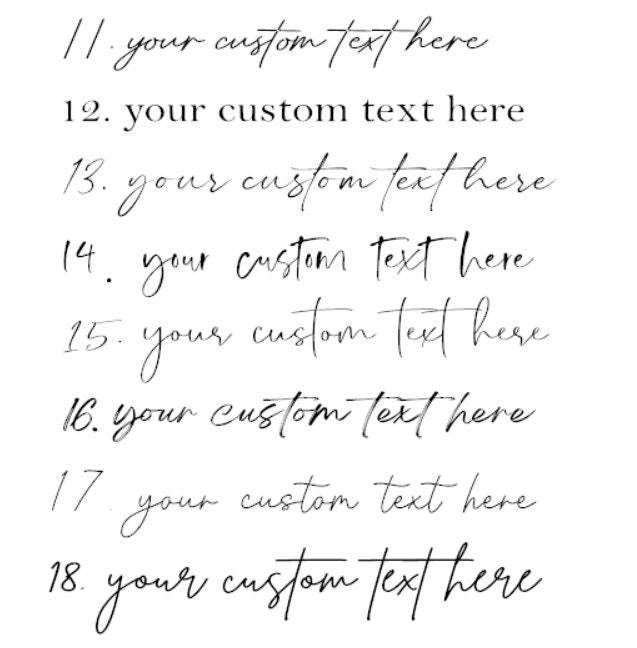 11. your custom text here
12. your custom text here
13. your custom text here
14. your custom text here
15. your custom text here
16. your custom text here
17. your custom text here
18. your custom text here